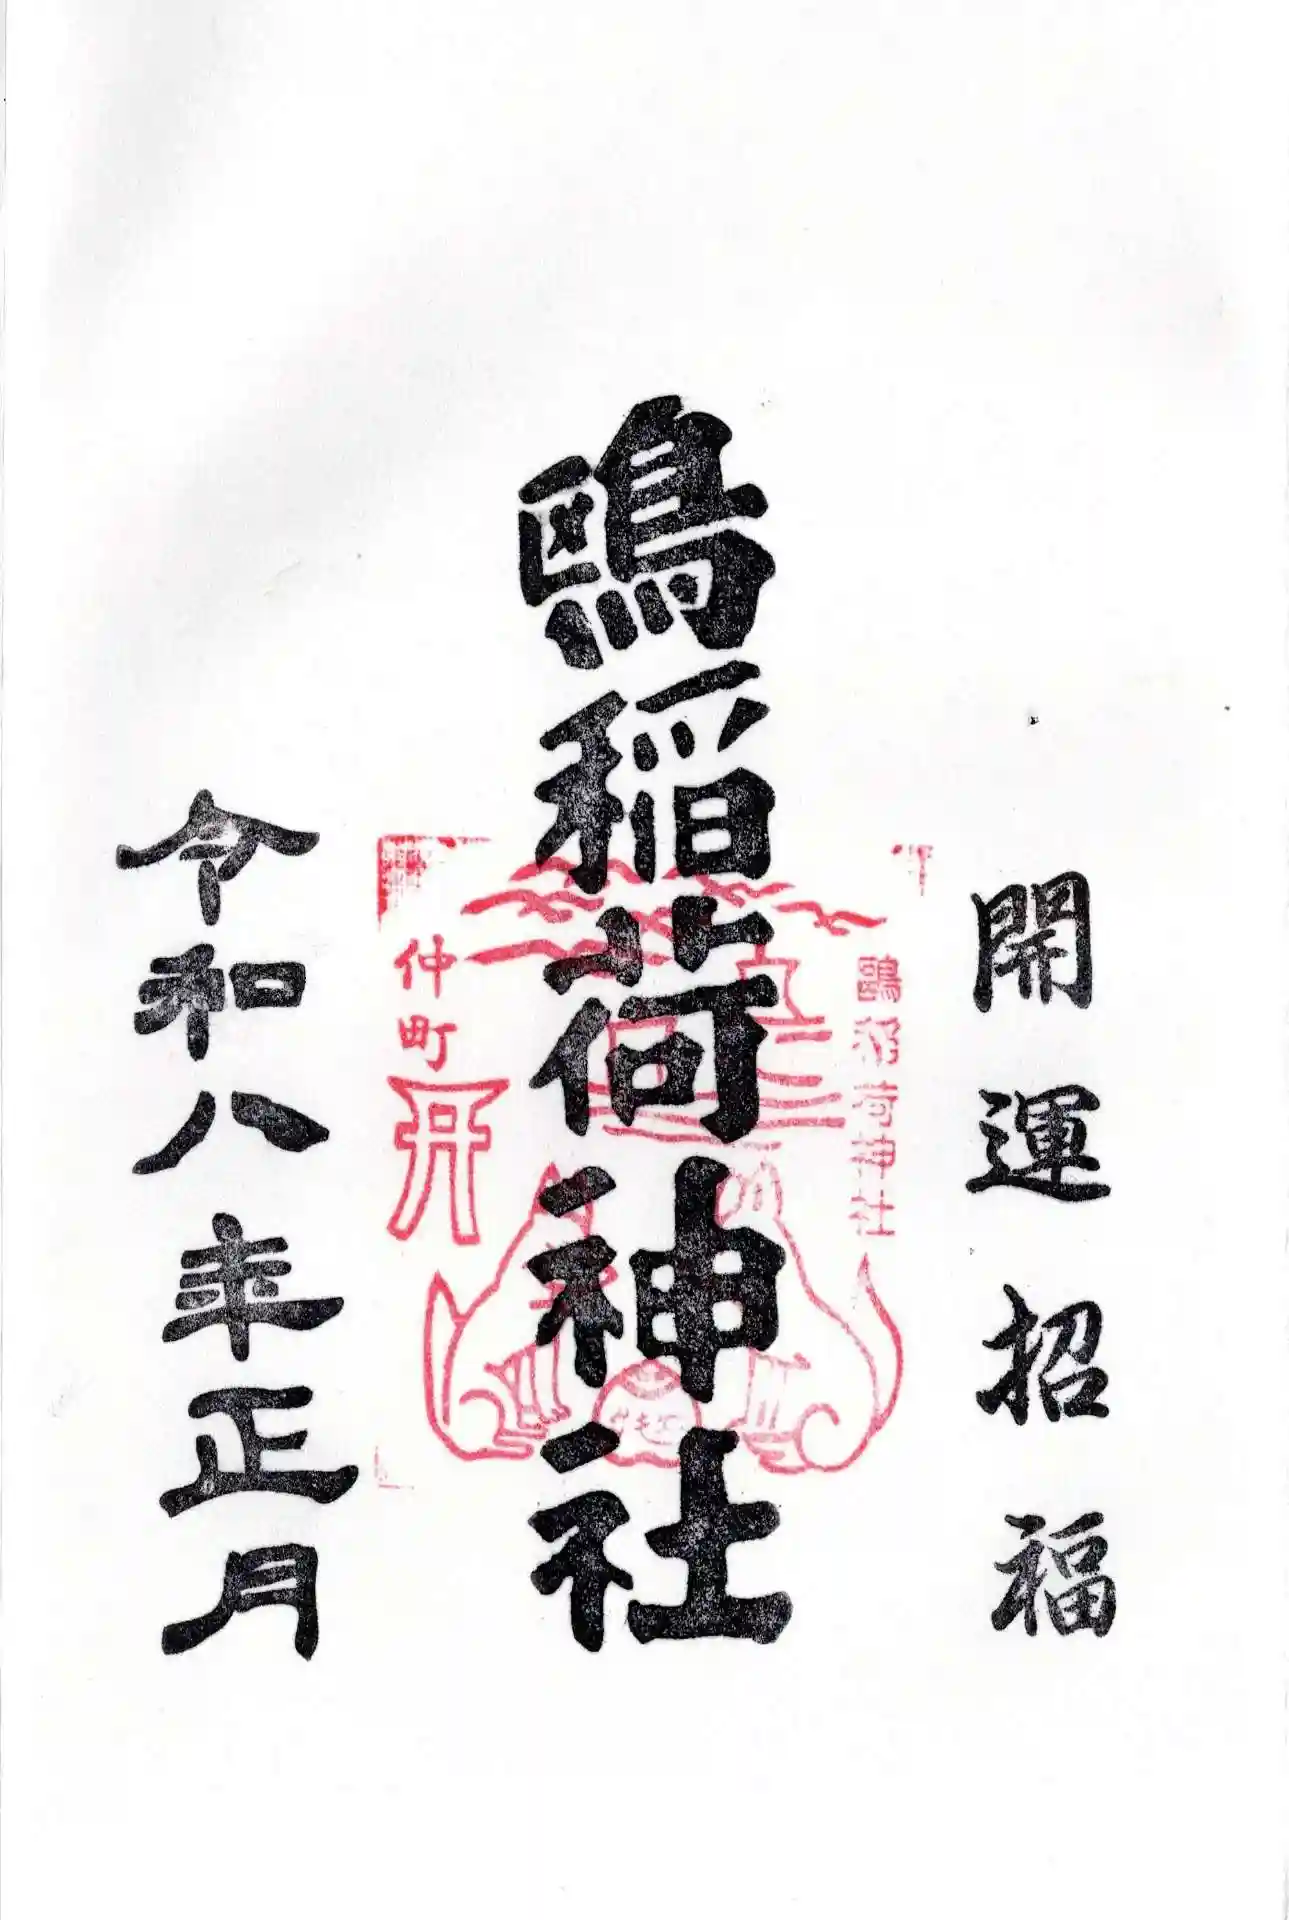 開運招福
鴎稲荷神社
鴎稲荷神社
仲町
令和八年正月